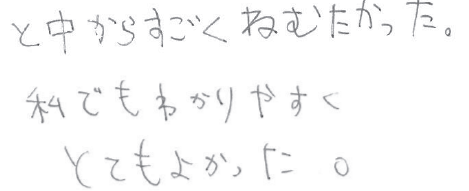 と中からすごくねむたかった。
私でもわかりやすく
とてもよかった。